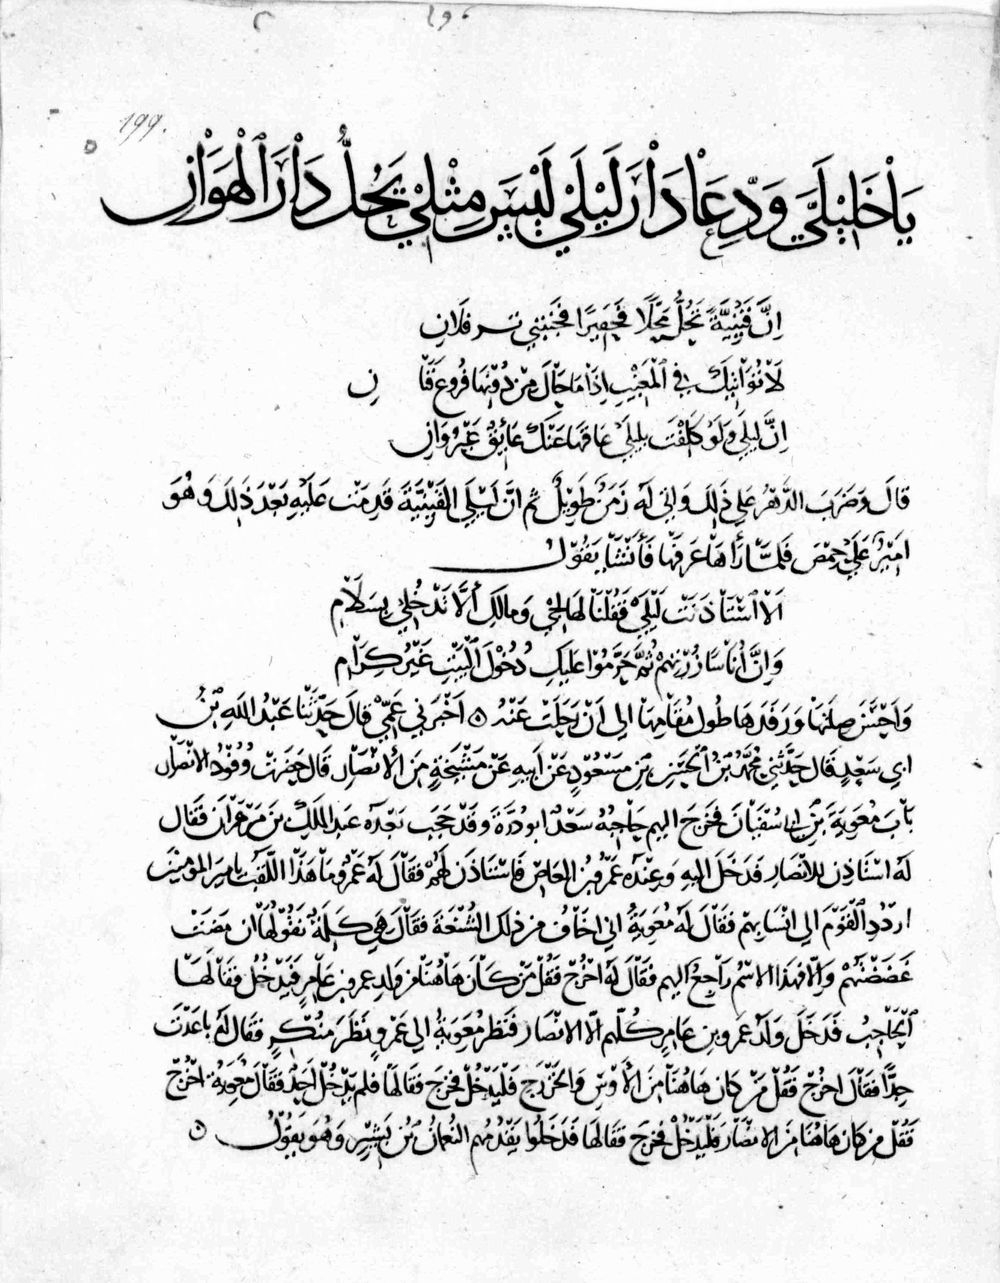 199.
يَاْخَلِيْلَيَّ وَدِّعَاْ دَاْرَ لَيْلَيْ لَيْسَ مِثْلِيْ يَحُلُّ دَاْرَ اَلْهَوَاْنِ
اِنَّ قَيْنِيَّةً تَحُلُّ مَحَلًا فَحَفِيْرًا فَجَنَّتَيْ تر فلَانِ
لَاْتُوَاْتِيْكَ فِي اَلْمَغِيْبِ اِذَاْ مَا حَاْلَ مِنْ دُوْنِهَا فُرُوع قَنَا نِ
اِنَّ ليلي وَلَوْ كَلِفْتَ بليلَيْ عَاقهَا عَنْكَ عَاْئِقٌ غَيْرُ وَاْنِ
قالَ وَضَرَبَ الدَّهْرُ علي ذَلِكَ وَاتي لَهُ زَمَنٌ طَوِيْلٌ ثم انَّ لَيْلَي القَيْنِيَّةَ قَدِمَتْ عَلَيْهِ بَعْدَ ذلكَ وَهُوَ
امِيْرٌ عَلَيْ حِمْصَ فَلمَّا رَاَهَاْ عَرفَهَا فَأنْشَأَ يَقُوْلُ
اَلَاْ اسْتَاْذَنَتْ لَيْلَيْ فَقُلْنَا لهَا لِجِي وَمالَكِ أَلَّا تَدْخُلِيْ بِسَلَاْمِ
وَاِنَّ أُنَاْسًا زُرْتِهِمْ ثُمَّ حَرَّمُوْا عَلَيْكِ دُخُوْلَ اَلْبَيْتِ غَيْرُ كِرَاْمِ
وَاَحْسَنَ صِلَتَهَا وَرَفدَهَا طُولَ مُقَامِهَا الي اَنْ رَحَلَتْ عَنْهُ ۞ اَخْبَرَنِي عَمِّيْ قَالَ حَدَّثَنَا عَبْدُ اللهِ بْنُ
ابي سَعِيْدٍ قَالَ حَدَّثَنِي مُحَمَّدُ بْنُ اَلْحَسَنِ بْنِ مسْعُوْدٍ عَنْ اَبيهِ عَنْ مَشْيَخَةٍ مِنَ الأَنْصَاْرِ قَالَ حَضَرَتْ وُفُوْدُ الانْصَاْرِ
بَاْبَ مُعَوِيَةَ بْنِ ابي سُفْيَانَ فخَرَجَ اليهم حَاْجِبُهُ سَعْدٌ ابو دُرَّةَ وَقَدْ حَجَبَ بَعْدَهُ عبدَ المَلِكِ بنَ مَرْوَاْنَ فَقَالَ
لَهُ اسْتَاذِنْ للانْصَارِ فَدَخَلَ اليهِ وَعِنْدَهُ عَمْرُو بْنُ العَاصِ فَاسْتَاذَنَ لَهُمْ فَقَالَ لَهُ عَمْرٌو مَا هَذَا اللَّقَبُ يامِيرَ المومِنينَ
ارْدُدِ اَلْقَوْمَ الي انْسَابهم فَقَالَ لَهُ مُعَوِيَةُ اني اخَافُ من ذلكَ الشُّنْعَةَ فقَالَ هِيَ كَلِمَةٌ تَقُوْلُهَا ان مَضَتْ
غَضَضْتَهُمْ وَالَّا فهَذا الاسْمُ رَاْجِعٌ اليهم فقَالَ لَهُ اخْرُجْ فَقُلْ مَنْ كَاْنَ هَاهُنَا من وَلدِ عمرو بن عَاْمِرٍ فَليَدْخُلْ فقَالهَا
اَلْحَاْجِبُ فَدَخَلَ وَلَدُ عَمرو بنِ عَامِرٍ كُلّهم الّا الانْصَار فَنَظرَ مُعَوِيةُ الي عَمْرٍو نَظَرَ مُنْكِرٍ فقَال لَهُ باعَدْتَ
جِدًّا فقَالَ اخْرُجْ فَقُلْ مَنْ كانَ هَاهُنَا مِنَ الأَوْسِ وَالخزْرَجِ فَلْيَدْخُلْ فخَرَجَ فقَالهَا فلم يَدْخُلْ اَحَدٌ فقَالَ مُعَوِيَةُ اخْرُجْ
فَقُلْ من كانَ هَاهُنَا مِنَ الانْصَارِ فَلْيَدْخُلْ فخَرَجَ فَقَالهَا فَدَخَلُوا يَقْدُمُهم النُعْمَانُ بْنُ بَشِيْرٍ وَهُوَ يَقُوْلُ ۞